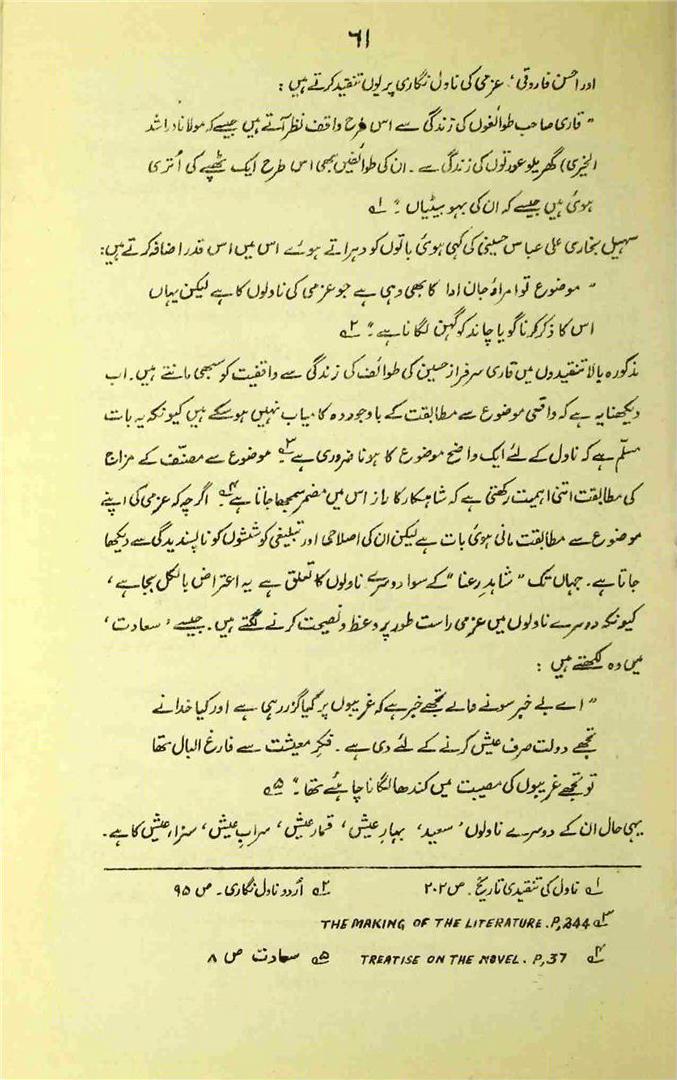 ۶۱
اور احسن فاروقی، عزمی کی ناول نگاری پر یوں تنقید کرتے ہیں :
" قاری صاحب طوائفوں کی زندگی سے اس طرح واقف نظر آتے ہیں جیسے کہ مولانا راشد
الخیری) گھریلو عورتوں کی زندگی سے ۔ ان کی طوائفیں بھی اس طرح ایک ٹھپے کی اُتری
ہوئی ہیں جیسے کہ ان کی بہو بیٹیاں ۔" ۱؎
سہیل بخاری علی عباس حسینی کی کہی ہوئی باتوں کو دہراتے ہوئے اس میں اس قدر اضافہ کرتے ہیں:
" موضوع تو امراؤ جان ادا کا بھی وہی ہے جو عزمی کی ناولوں کا ہے لیکن یہاں
اس کا ذکر کرنا گویا چاند کو گہن لگانا ہے ۔" ۲؎
مذکورہ بالا تنقیدوں میں قاری سرفراز حسین کی طوائف کی زندگی سے واقفیت کو سبھی مانتے ہیں۔ اب
دیکھنا یہ ہے کہ واقعی موضوع سے مطابقت کے باوجود وہ کامیاب نہیں ہوسکے ہیں کیونکہ یہ بات
مسلّم ہے کہ ناول کے لئے ایک واضح موضوع کا ہونا ضروری ہے ۳؎ موضوع سے مصنّف کے مزاج
کی مطابقت اتنی اہمیت رکھتی ہے کہ شاہکار کا راز اس میں مضمر سمجھا جاتا ہے ۴؎ اگرچہ کہ عزمی کی اپنے
موضوع سے مطابقت مانی ہوئی بات ہے لیکن ان کی اصلاحی اور تبلیغی کوششوں کو ناپسندیدگی سے دیکھا
جاتا ہے۔ جہاں تک " شاہدِ رعنا " کے سوا دوسرے ناولوں کا تعلق ہے یہ اعتراض بالکل بجا ہے ،
کیونکہ دوسرے ناولوں میں عزمی راست طور پر وعظ و نصیحت کرنے لگتے ہیں۔ جیسے ، سعادت ،
میں وہ لکھتے ہیں :
" اے بے خبر سونے والے تجھے خبر ہے کہ غریبوں پر کیا گزر رہی ہے اور کیا خدا نے
تجھے دولت صرف عیش کرنے کے لئے دی ہے ۔ فکرِ معیشت سے فارغ البال تھا
تو تجھے غریبوں کی مصیبت میں کندھا لگانا چاہئے تھا ۔" ۵؎
یہی حال ان کے دوسرے ناولوں، سعید، بہارِ عیش ، قمارِ عیش ، سرابِ عیش ، سزائے عیش کا ہے۔
۱؎ ناول کی تنقیدی تاریخ ۔ ص ۲۰۲ ۲؎ اُردو ناول نگاری ۔ ص ۹۵
۳؎ THE MAKING OF THE LITERATURE . P, 244
۴؎ TREATISE ON THE NOVEL . P, 37 ۵؎ سعادت ص ۸